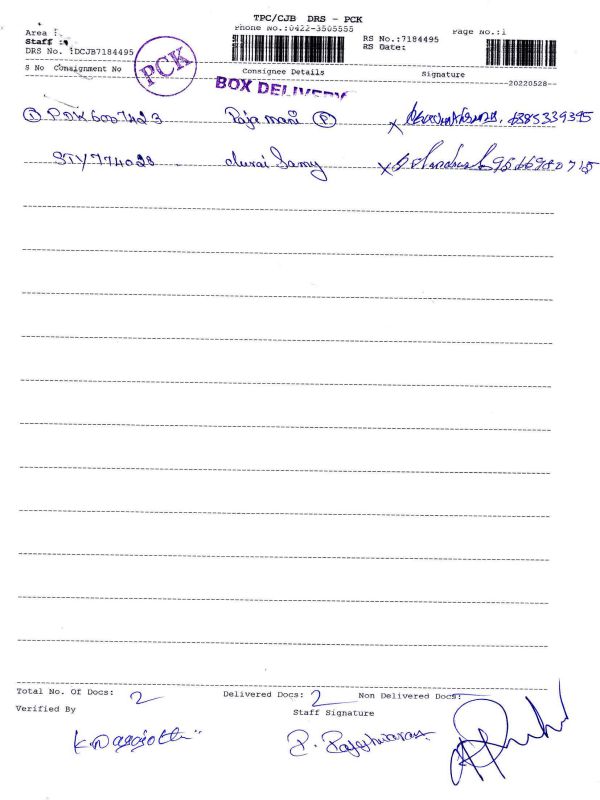 TPC/CJB DRS - PCK
Phone No.:0422-3505555
Page No.:1
Area :
Staff :
DRS No. :DCJB7184495
RS No.:7184495
RS Date:
PCK
S No Consignment No Consignee Details Signature
--20220528--
BOX DELIVERY
① PDK6007423 Raja mani Ⓟ 6385339395
STY774028 durai Samy 9566980715
Total No. Of Docs: 2 Delivered Docs: 2 Non Delivered Docs:
Verified By Staff Signature
P. Rajeshwaran